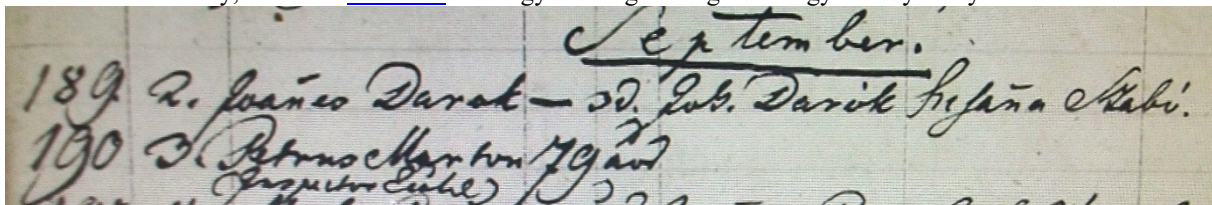 September.
189 2. Joañes Darok — 3d. Joh. Darók Susaña Szabó.
190 3. Petrus Marton 79
(Inspector